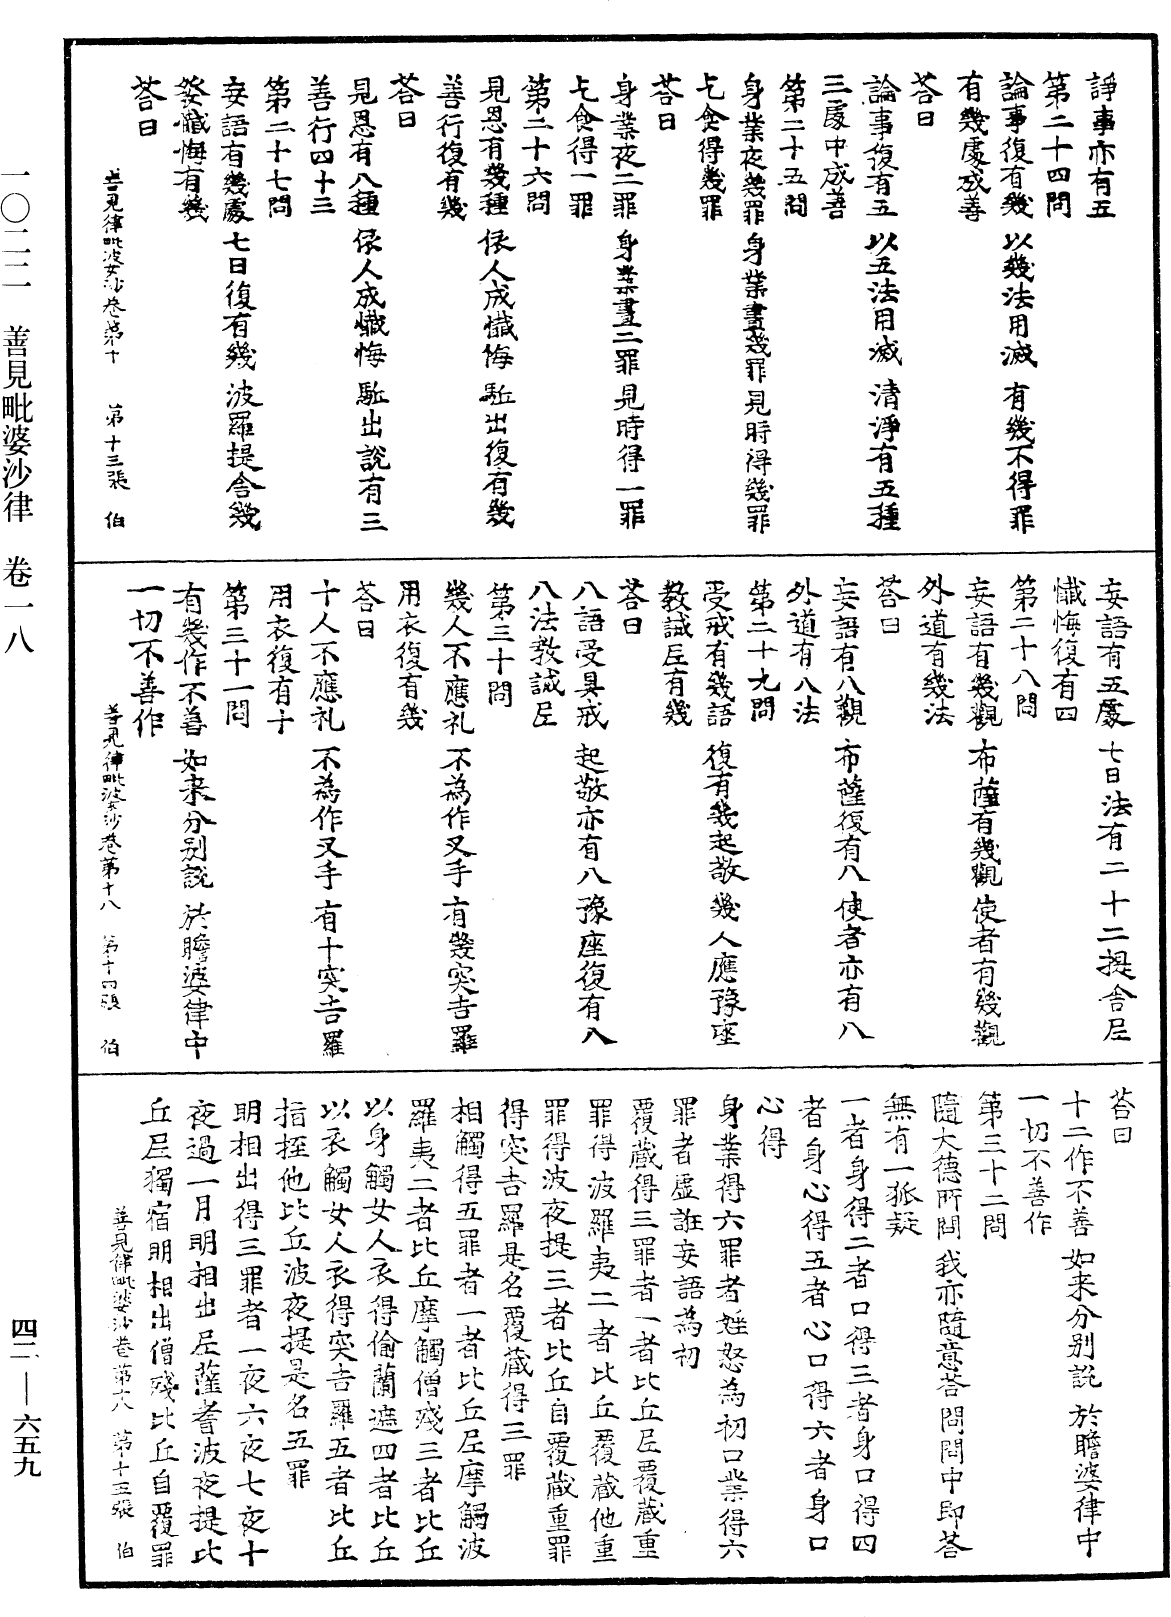 諍事亦有五
第二十四問
論事復有幾　以幾法用滅　有幾不得罪
有幾處成善
荅曰
論事復有五　以五法用滅　清淨有五種
三處中成善
第二十五問
身業夜幾罪　身業晝幾罪　見時得幾罪
乞食得幾罪
荅曰
身業夜二罪　身業晝二罪　見時得一罪
乞食得一罪
第二十六問
見恩有幾種　依人成懺悔　駈出復有幾
善行復有幾
荅曰
見恩有八種　依人成懺悔　駈出說有三
善行四十三
第二十七問
妄語有幾處　七日復有幾　波羅提舍幾
發懺悔有幾
荅曰
善見律毗婆沙卷第十　第十三張　伯
妄語有五處　七日法有二　十二提舍尼
懺悔復有四
第二十八問
妄語有幾觀　布薩有幾觀　使者有幾觀
外道有幾法
荅曰
妄語有八觀　布薩復有八　使者亦有八
外道有八法
第二十九問
受戒有幾語　復有幾起敬　幾人應豫座
教誡尼有幾
荅曰
八語受具戒　起敬亦有八　豫座復有八
八法教誡尼
第三十問
幾人不應礼　不為作叉手　有幾突吉羅
用衣復有幾
荅曰
十人不應礼　不為作叉手　有十突吉羅
用衣復有十
第三十一問
有幾作不善　如来分別說　於瞻婆律中
一切不善作
善見律毗婆沙卷第十八　第十四張　伯
荅曰
十二作不善　如来分別說　於瞻婆律中
一切不善作
第三十二問
隨大德所問　我亦隨意荅　問問中即荅
無有一狐疑
一者身得二者口得三者身口得四
者身心得五者心口得六者身口
心得
身業得六罪者婬怒為初口業得六
罪者虛誑妄語為初
覆藏得三罪者一者比丘尼覆藏重
罪得波羅夷二者比丘覆藏他重
罪得波夜提三者比丘自覆藏重罪
得突吉羅是名覆藏得三罪
相觸得五罪者一者比丘尼摩觸波
羅夷二者比丘摩觸僧殘三者比丘
以身觸女人衣得偷蘭遮四者比丘
以衣觸女人衣得突吉羅五者比丘
指挃他比丘波夜提是名五罪
明相出得三罪者一夜六夜七夜十
夜過一月明相出尼薩耆波夜提比
丘尼獨宿明相出僧殘比丘自覆罪
善見律毗婆沙卷第十八　第十五張　伯
一〇二二　善見毗婆沙律　卷一八
四二——六五九